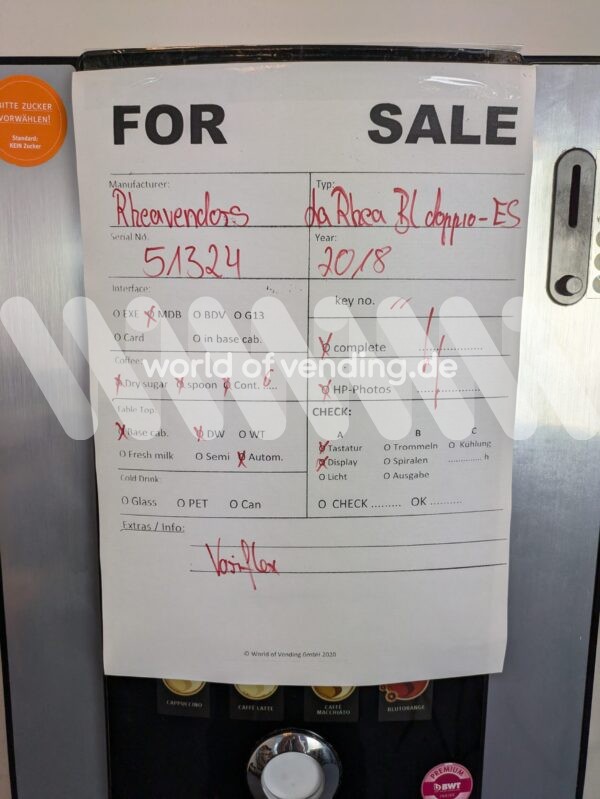 BITTE ZUCKER
VORWÄHLEN!
Standard:
KEIN Zucker
FOR SALE
Manufacturer: Typ:
Rheavendors laRhea BL doppio-ES
Serial No. Year:
51324 2018
Interface: key no. "
O EXE O MDB O BDV O G13
O Card O in base cab. O complete ..............
world of vending.de
Coffee:
O Dry sugar O spoon O Cont. 6.... O HP-Photos ..............
Table Top: CHECK:
O Base cab. O DW O WT A B C
O Tastatur O Trommeln O Kühlung
O Fresh milk O Semi O Autom. O Display O Spiralen ............. h
Cold Drink: O Licht O Ausgabe
O Glass O PET O Can O CHECK ......... OK ..........
Extras / Info:
Varioflex
© World of Vending GmbH 2020
CAPPUCCINO CAFFÈ LATTE CAFFÈ MACCHIATO BLUTORANGE
PREMIUM
BWT